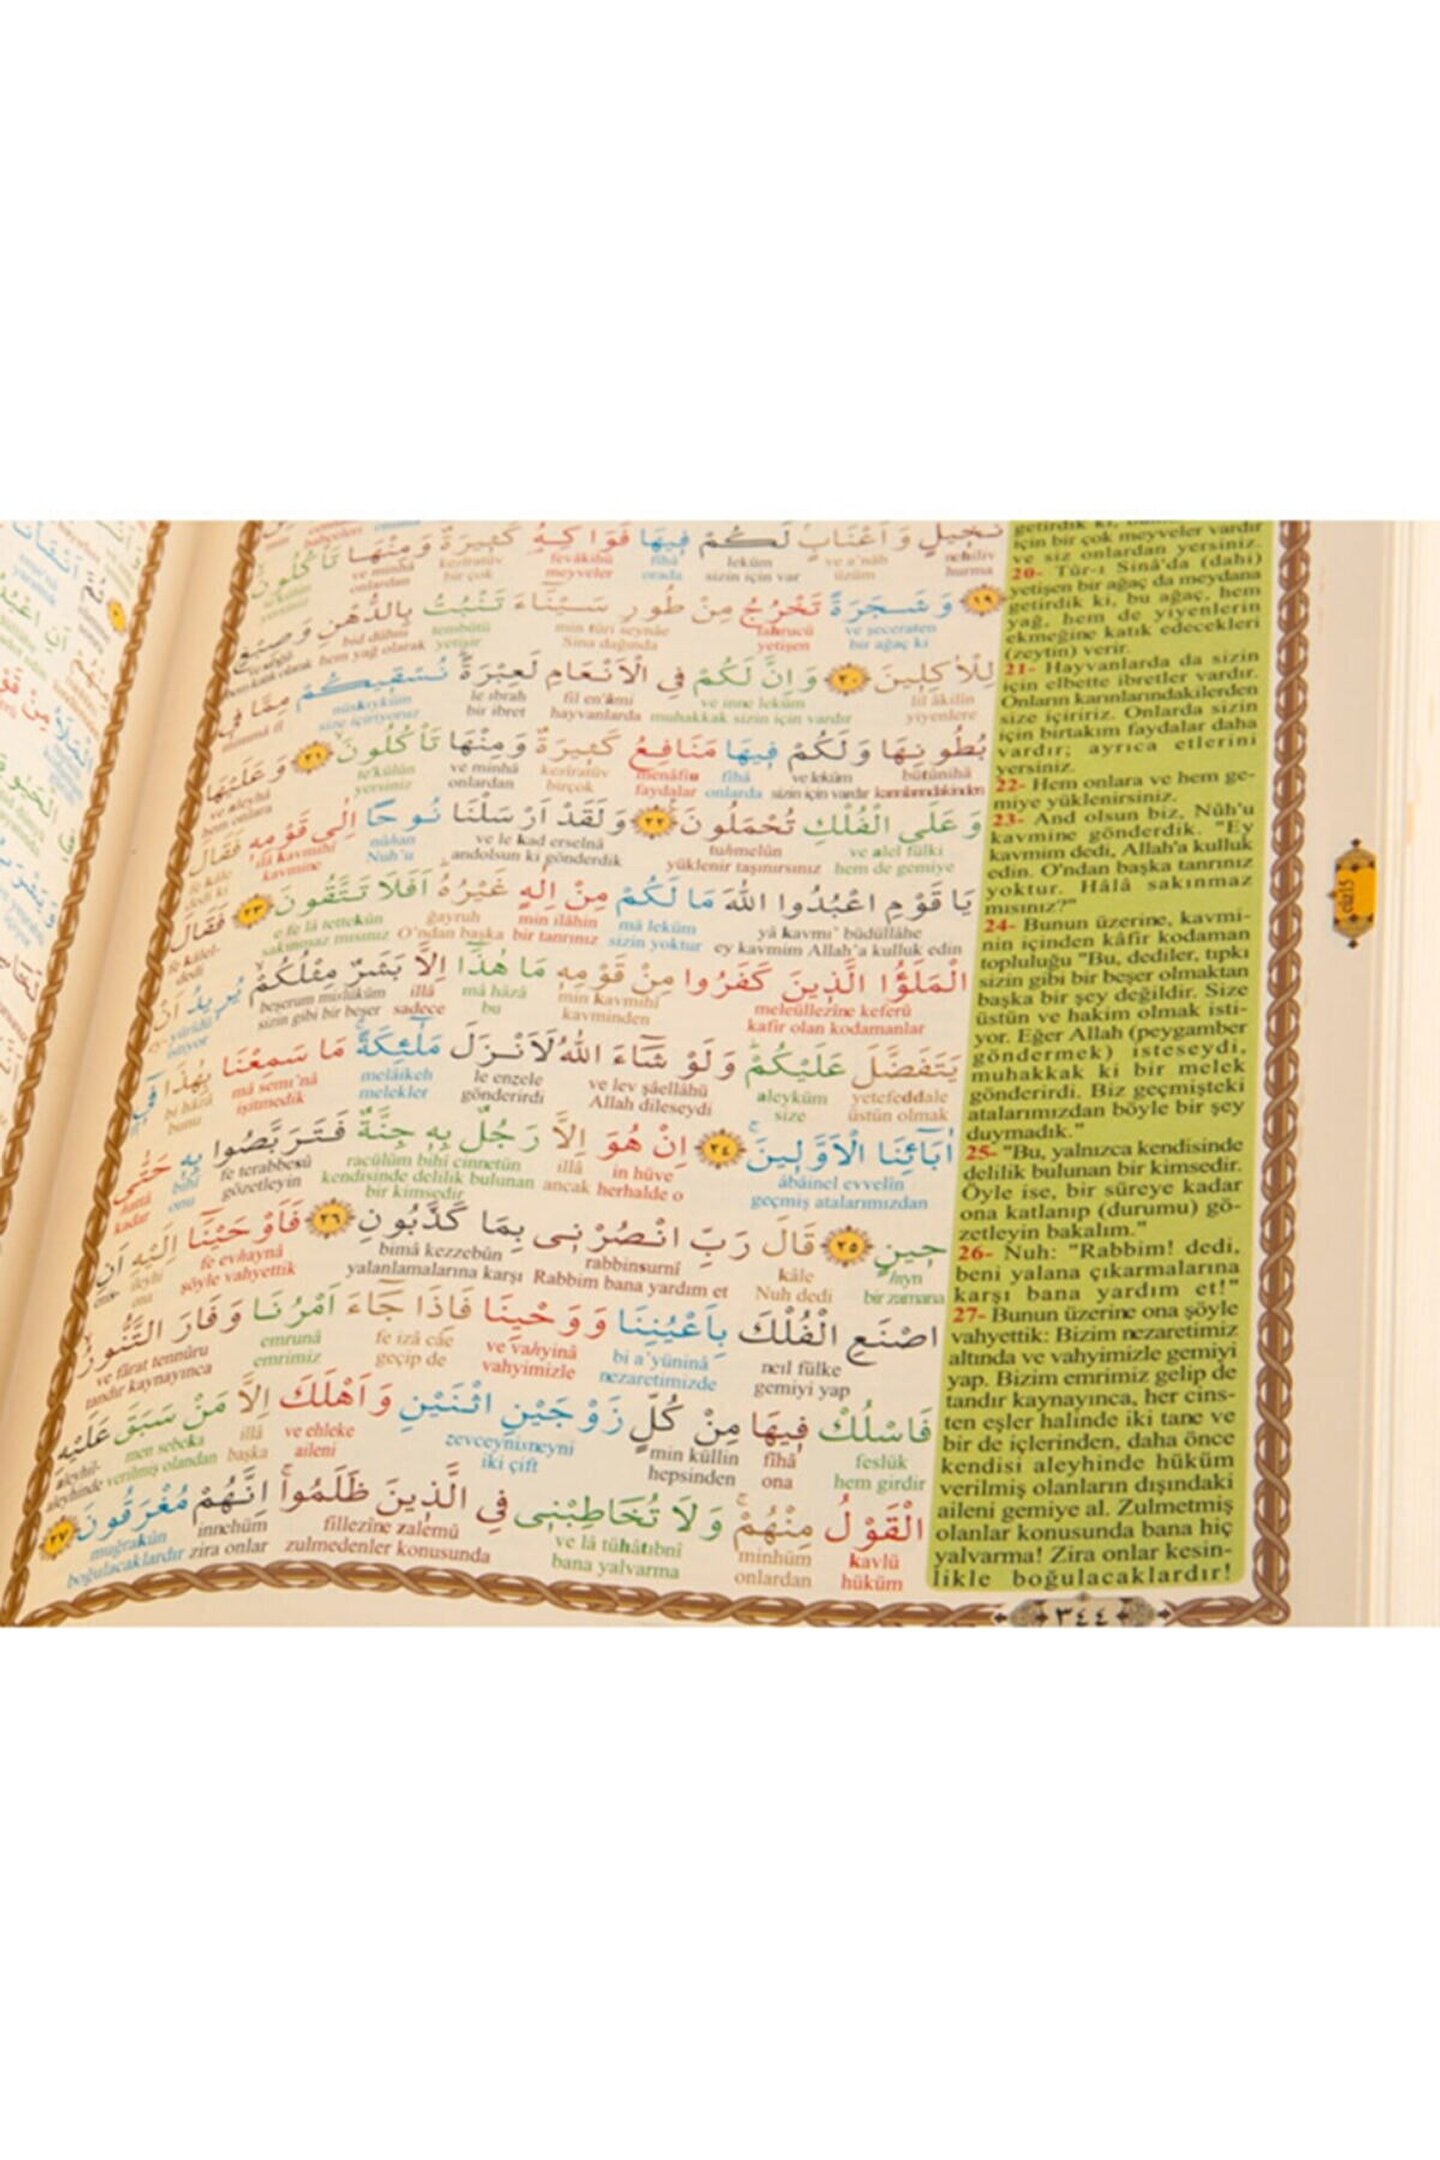 نَخِيلٍ وَاَعْنَابٍ لَكُمْ فِيهَا فَوَاكِهُ كَثِيرَةٌ وَمِنْهَا تَأْكُلُونَ
nehiliv ve a'nâb leküm fîhâ fevâkihü kesîratüv ve minhâ
hurma üzüm sizin için var orada meyveler bir çok onlardan yersiniz
﴿١٩﴾ وَشَجَرَةً تَخْرُجُ مِنْ طُورِ سَيْنَٓاءَ تَنْبُتُ بِالدُّهْنِ وَصِبْغٍ
ve şeceraten tahrucü min tûri seynâe tembütü bid dühni
bir ağaç ki yetişen Sina dağında yetişir hem yağ olarak hem katık olarak
لِلْاٰكِلِينَ ﴿٢٠﴾ وَاِنَّ لَكُمْ فِي الْاَنْعَامِ لَعِبْرَةً نُسْقِيكُمْ مِمَّا فِي
lil âkilîn ve inne leküm fil en'âmi le ıbrah nüskıyküm mimmâ fî
yiyenlere muhakkak sizin için vardır hayvanlarda bir ibret size içiriyoruz
بُطُونِهَا وَلَكُمْ فِيهَا مَنَافِعُ كَثِيرَةٌ وَمِنْهَا تَأْكُلُونَ ﴿٢١﴾ وَعَلَيْهَا
bütûnihâ ve leküm fîhâ menâfiu kesîratüv ve minhâ te'külûn ve aleyhâ
karınlarındakinden sizin için vardır onlarda faydalar birçok onlardan yersiniz hem onlara
وَعَلَى الْفُلْكِ تُحْمَلُونَ ﴿٢٢﴾ وَلَقَدْ اَرْسَلْنَا نُوحًا اِلٰى قَوْمِهِ فَقَالَ
ve alel fülki tuhmelûn ve le kad erselnâ nûhan ilâ kavmihî fe kâle
hem de gemiye yüklenir taşınırsınız andolsun ki gönderdik Nuh'u kavmine dedi ki
يَا قَوْمِ اعْبُدُوا اللّٰهَ مَا لَكُمْ مِنْ اِلٰهٍ غَيْرُهُ اَفَلَا تَتَّقُونَ ﴿٢٣﴾ فَقَالَ
yâ kavmi' büdüllâhe mâ leküm min ilâhin ğayruh e fe lâ tettekûn fe kâlel-
ey kavmim Allah'a kulluk edin sizin yoktur bir tanrınız O'ndan başka sakınmaz mısınız dedi
الْمَلَؤُا الَّذِينَ كَفَرُوا مِنْ قَوْمِهِ مَا هٰذَٓا اِلَّا بَشَرٌ مِثْلُكُمْ يُرِيدُ اَنْ
meleüllezîne keferû min kavmihî mâ hâzâ illâ beşerum mislüküm ey- yürîdü
kafir olan kodamanlar kavminden bu sadece sizin gibi bir beşer istiyor
يَتَفَضَّلَ عَلَيْكُمْ وَلَوْ شَٓاءَ اللّٰهُ لَاَنْزَلَ مَلٰٓئِكَةً مَا سَمِعْنَا بِهٰذَا فِٓي
yetefeddale aleyküm ve lev şâellâhü le enzele melâikeh mâ semı'nâ bi hâzâ
üstün olmak size Allah dileseydi gönderirdi melekler işitmedik bunu
اٰبَٓائِنَا الْاَوَّلِينَ ﴿٢٤﴾ اِنْ هُوَ اِلَّا رَجُلٌ بِهِ جِنَّةٌ فَتَرَبَّصُوا بِهِ حَتّٰى
âbâinel evvelîn in hüve illâ racülüm bihî cinnetün fe terabbesû bihî hattâ
geçmiş atalarımızdan herhalde o ancak kendisinde delilik bulunan bir kimsedir gözetleyin onu kadar
حِينٍ ﴿٢٥﴾ قَالَ رَبِّ انْصُرْنِي بِمَا كَذَّبُونِ ﴿٢٦﴾ فَاَوْحَيْنَٓا اِلَيْهِ اَنِ
hıyn kâle rabbinsurnî bimâ kezzebûn fe evhaynâ ileyhi enis-
bir zamana Nuh dedi Rabbim bana yardım et yalanlamalarına karşı şöyle vahyettik ona
اصْنَعِ الْفُلْكَ بِاَعْيُنِنَا وَوَحْيِنَا فَاِذَا جَٓاءَ اَمْرُنَا وَفَارَ التَّنُّورُ
neıl fülke bi a'yüninâ ve vahyinâ fe izâ câe emrunâ ve fârat tennûru
gemiyi yap nezaretimizde vahyimizle geçip de emrimiz tandır kaynayınca
فَاسْلُكْ فِيهَا مِنْ كُلٍّ زَوْجَيْنِ اثْنَيْنِ وَاَهْلَكَ اِلَّا مَنْ سَبَقَ عَلَيْهِ
feslük fîhâ min küllin zevceynisneyni ve ehleke illâ men sebeka aleyhil-
hem girdir ona hepsinden iki çift aileni başka verilmiş olandan aleyhinde
الْقَوْلُ مِنْهُمْ وَلَا تُخَاطِبْنِي فِي الَّذِينَ ظَلَمُوا اِنَّهُمْ مُغْرَقُونَ ﴿٢٧﴾
kavlü minhüm ve lâ tühâtıbnî fillezîne zalemû innehüm muğrakûn
hüküm onlardan bana yalvarma zulmedenler konusunda zira onlar boğulacaklardır
için bir çok meyveler vardır
ve siz onlardan yersiniz.
20- Tûr-ı Sinâ'da (dahi)
yetişen bir ağaç da meydana
getirdik ki, bu ağaç, hem
yağ, hem de yiyenlerin
ekmeğine katık edecekleri
(zeytin) verir.
21- Hayvanlarda da sizin
için elbette ibretler vardır.
Onların karınlarındakilerden
size içiririz. Onlarda sizin
için birtakım faydalar daha
vardır; ayrıca etlerini
yersiniz.
22- Hem onlara ve hem ge-
miye yüklenirsiniz.
23- And olsun biz, Nûh'u
kavmine gönderdik. "Ey
kavmim dedi, Allah'a kulluk
edin. O'ndan başka tanrınız
yoktur. Hâlâ sakınmaz
mısınız?"
24- Bunun üzerine, kavmi-
nin içinden kâfir kodaman
topluluğu "Bu, dediler, tıpkı
sizin gibi bir beşer olmaktan
başka bir şey değildir. Size
üstün ve hakim olmak isti-
yor. Eğer Allah (peygamber
göndermek) isteseydi,
muhakkak ki bir melek
gönderirdi. Biz geçmişteki
atalarımızdan böyle bir şey
duymadık."
25- "Bu, yalnızca kendisinde
delilik bulunan bir kimsedir.
Öyle ise, bir süreye kadar
ona katlanıp (durumu) gö-
zetleyin bakalım."
26- Nuh: "Rabbim! dedi,
beni yalana çıkarmalarına
karşı bana yardım et!"
27- Bunun üzerine ona şöyle
vahyettik: Bizim nezaretimiz
altında ve vahyimizle gemiyi
yap. Bizim emrimiz gelip de
tandır kaynayınca, her cins-
ten eşler halinde iki tane ve
bir de içlerinden, daha önce
kendisi aleyhinde hüküm
verilmiş olanların dışındaki
aileni gemiye al. Zulmetmiş
olanlar konusunda bana hiç
yalvarma! Zira onlar kesin-
likle boğulacaklardır!
٣٤٤